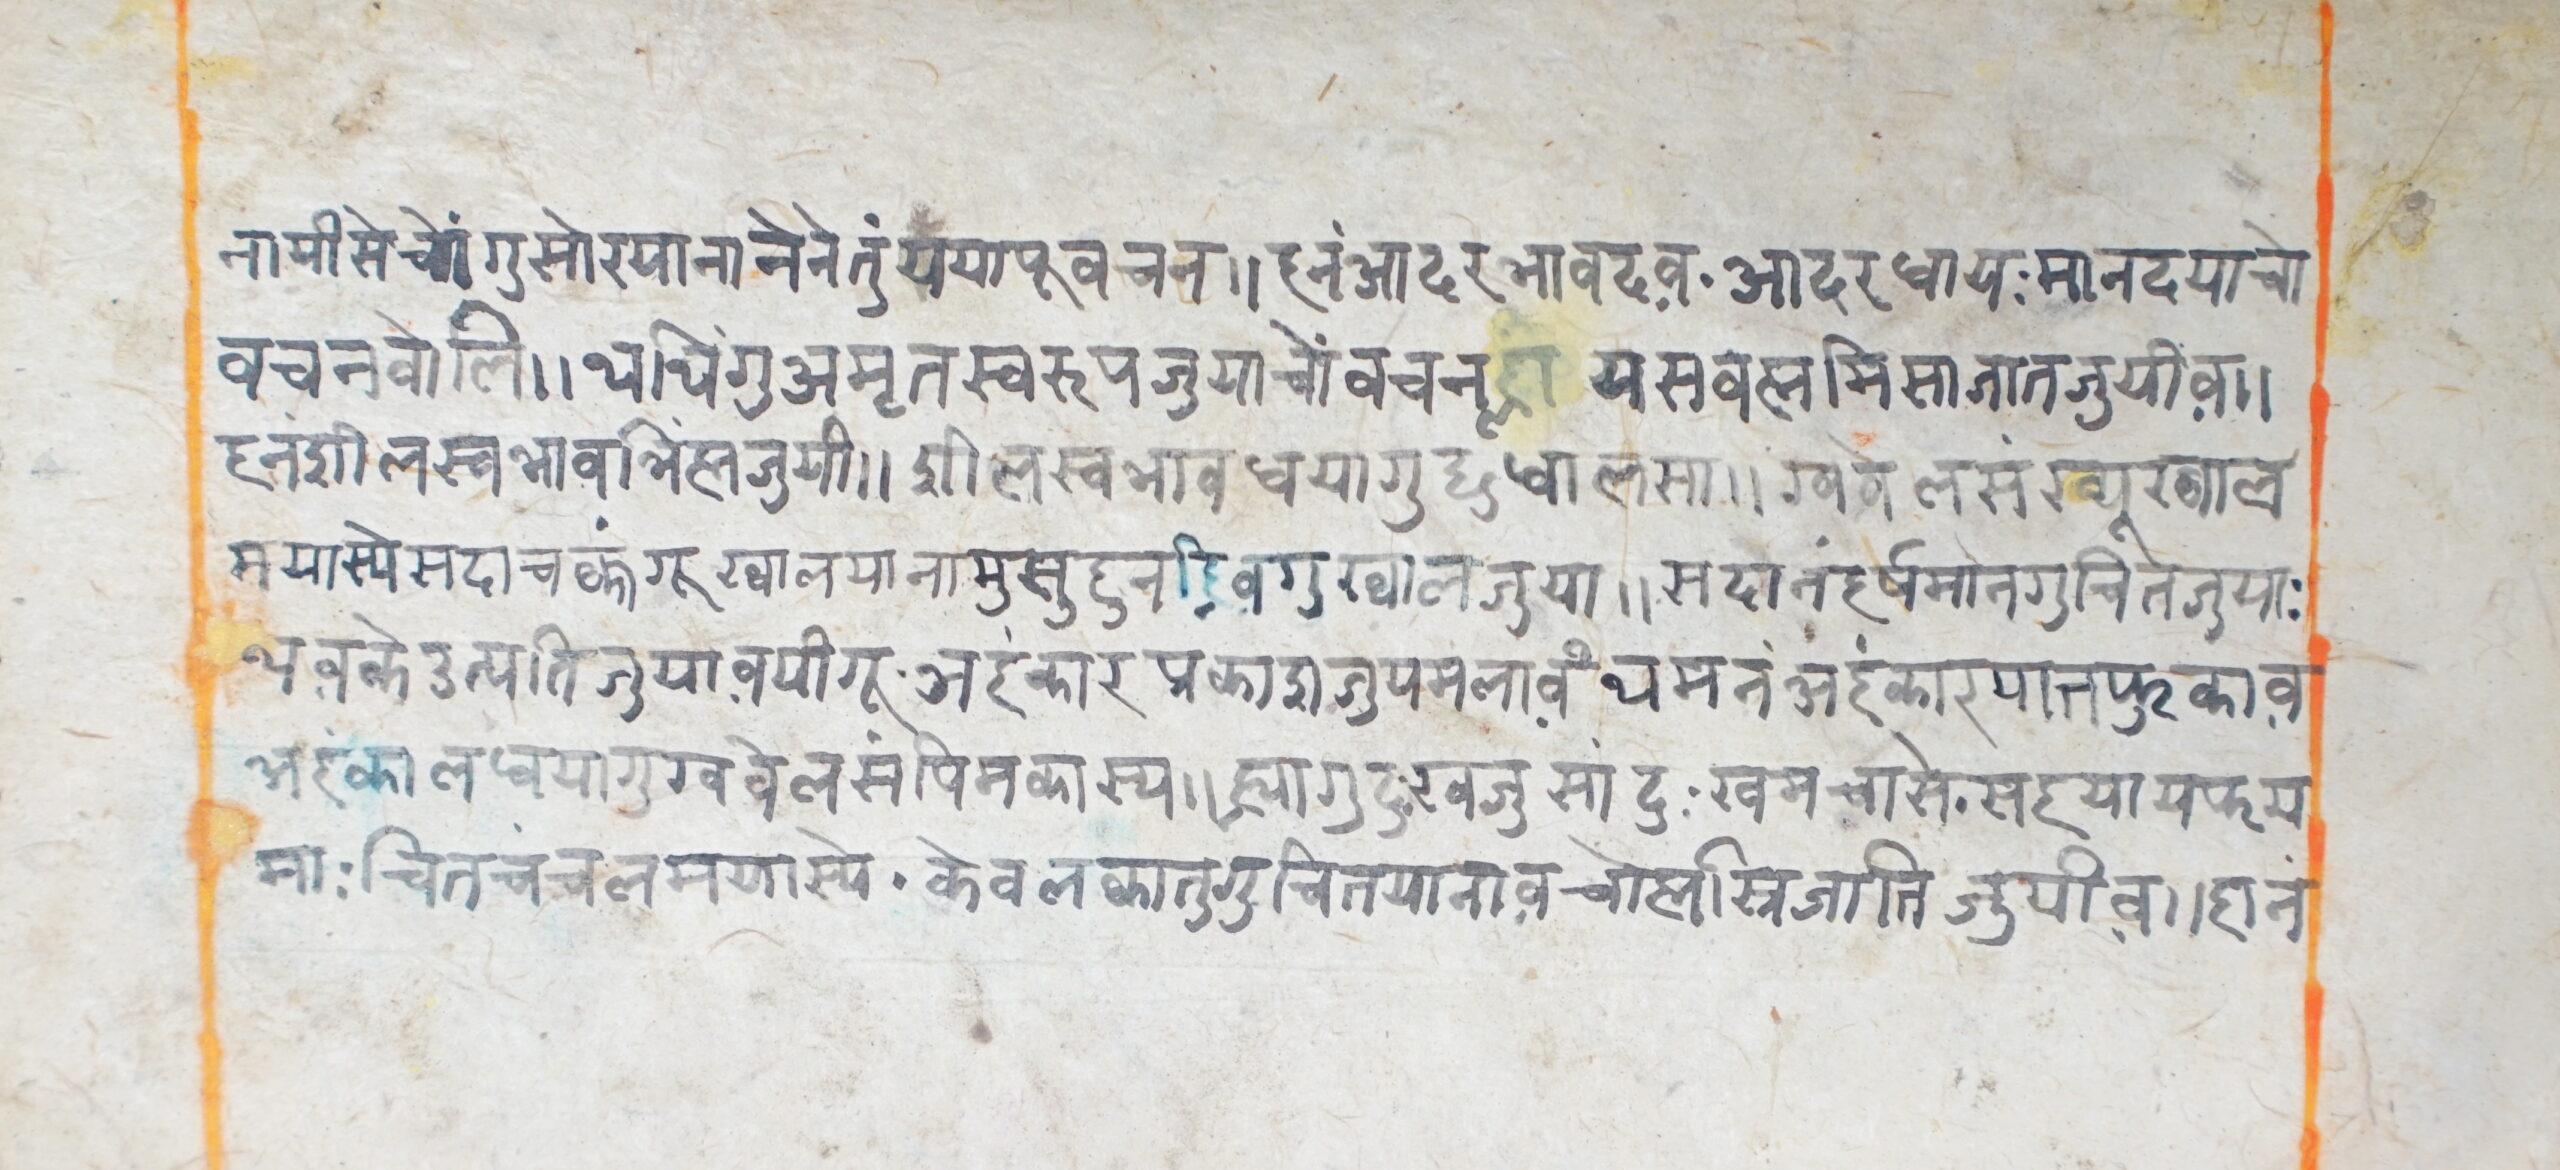 नायीसेचोंगुसोरयानानेनेतुंययापूवचन॥हनंआदरभावदव़·आदरधायः मानदयाचो
वचनवोलि॥थथिंगुअमृतस्वरूपजुयाचोंवचनह्रा यसवह्ममिसाजातजुयीव़॥
हनंशीलस्वभावभिंह्मजुयी॥शीलस्वभावधयागुछुधालसा॥ग्वबेलसंख्यूरखाल
मयास्येसदाचकंगूख्वालयानामुसुहुनहि़वगुख्वालजुया॥सदानंहर्षमानगुचितजुयाः
थव़केउत्पतिजुयाव़यीगू·अहंकारप्रकाशजुयमलाव़ंथमनंअहंकारयातफुकाव़
अहंकालधयागुग्वबेलसंपिमकास्य॥ह्यागुदुःखजुसांदुःखमचासे·सहयायफय
माः चितचंचलमयास्ये·केवलकातुगुचितयानाव़चोह्मस्त्रिजातिजुयीव़॥हानं